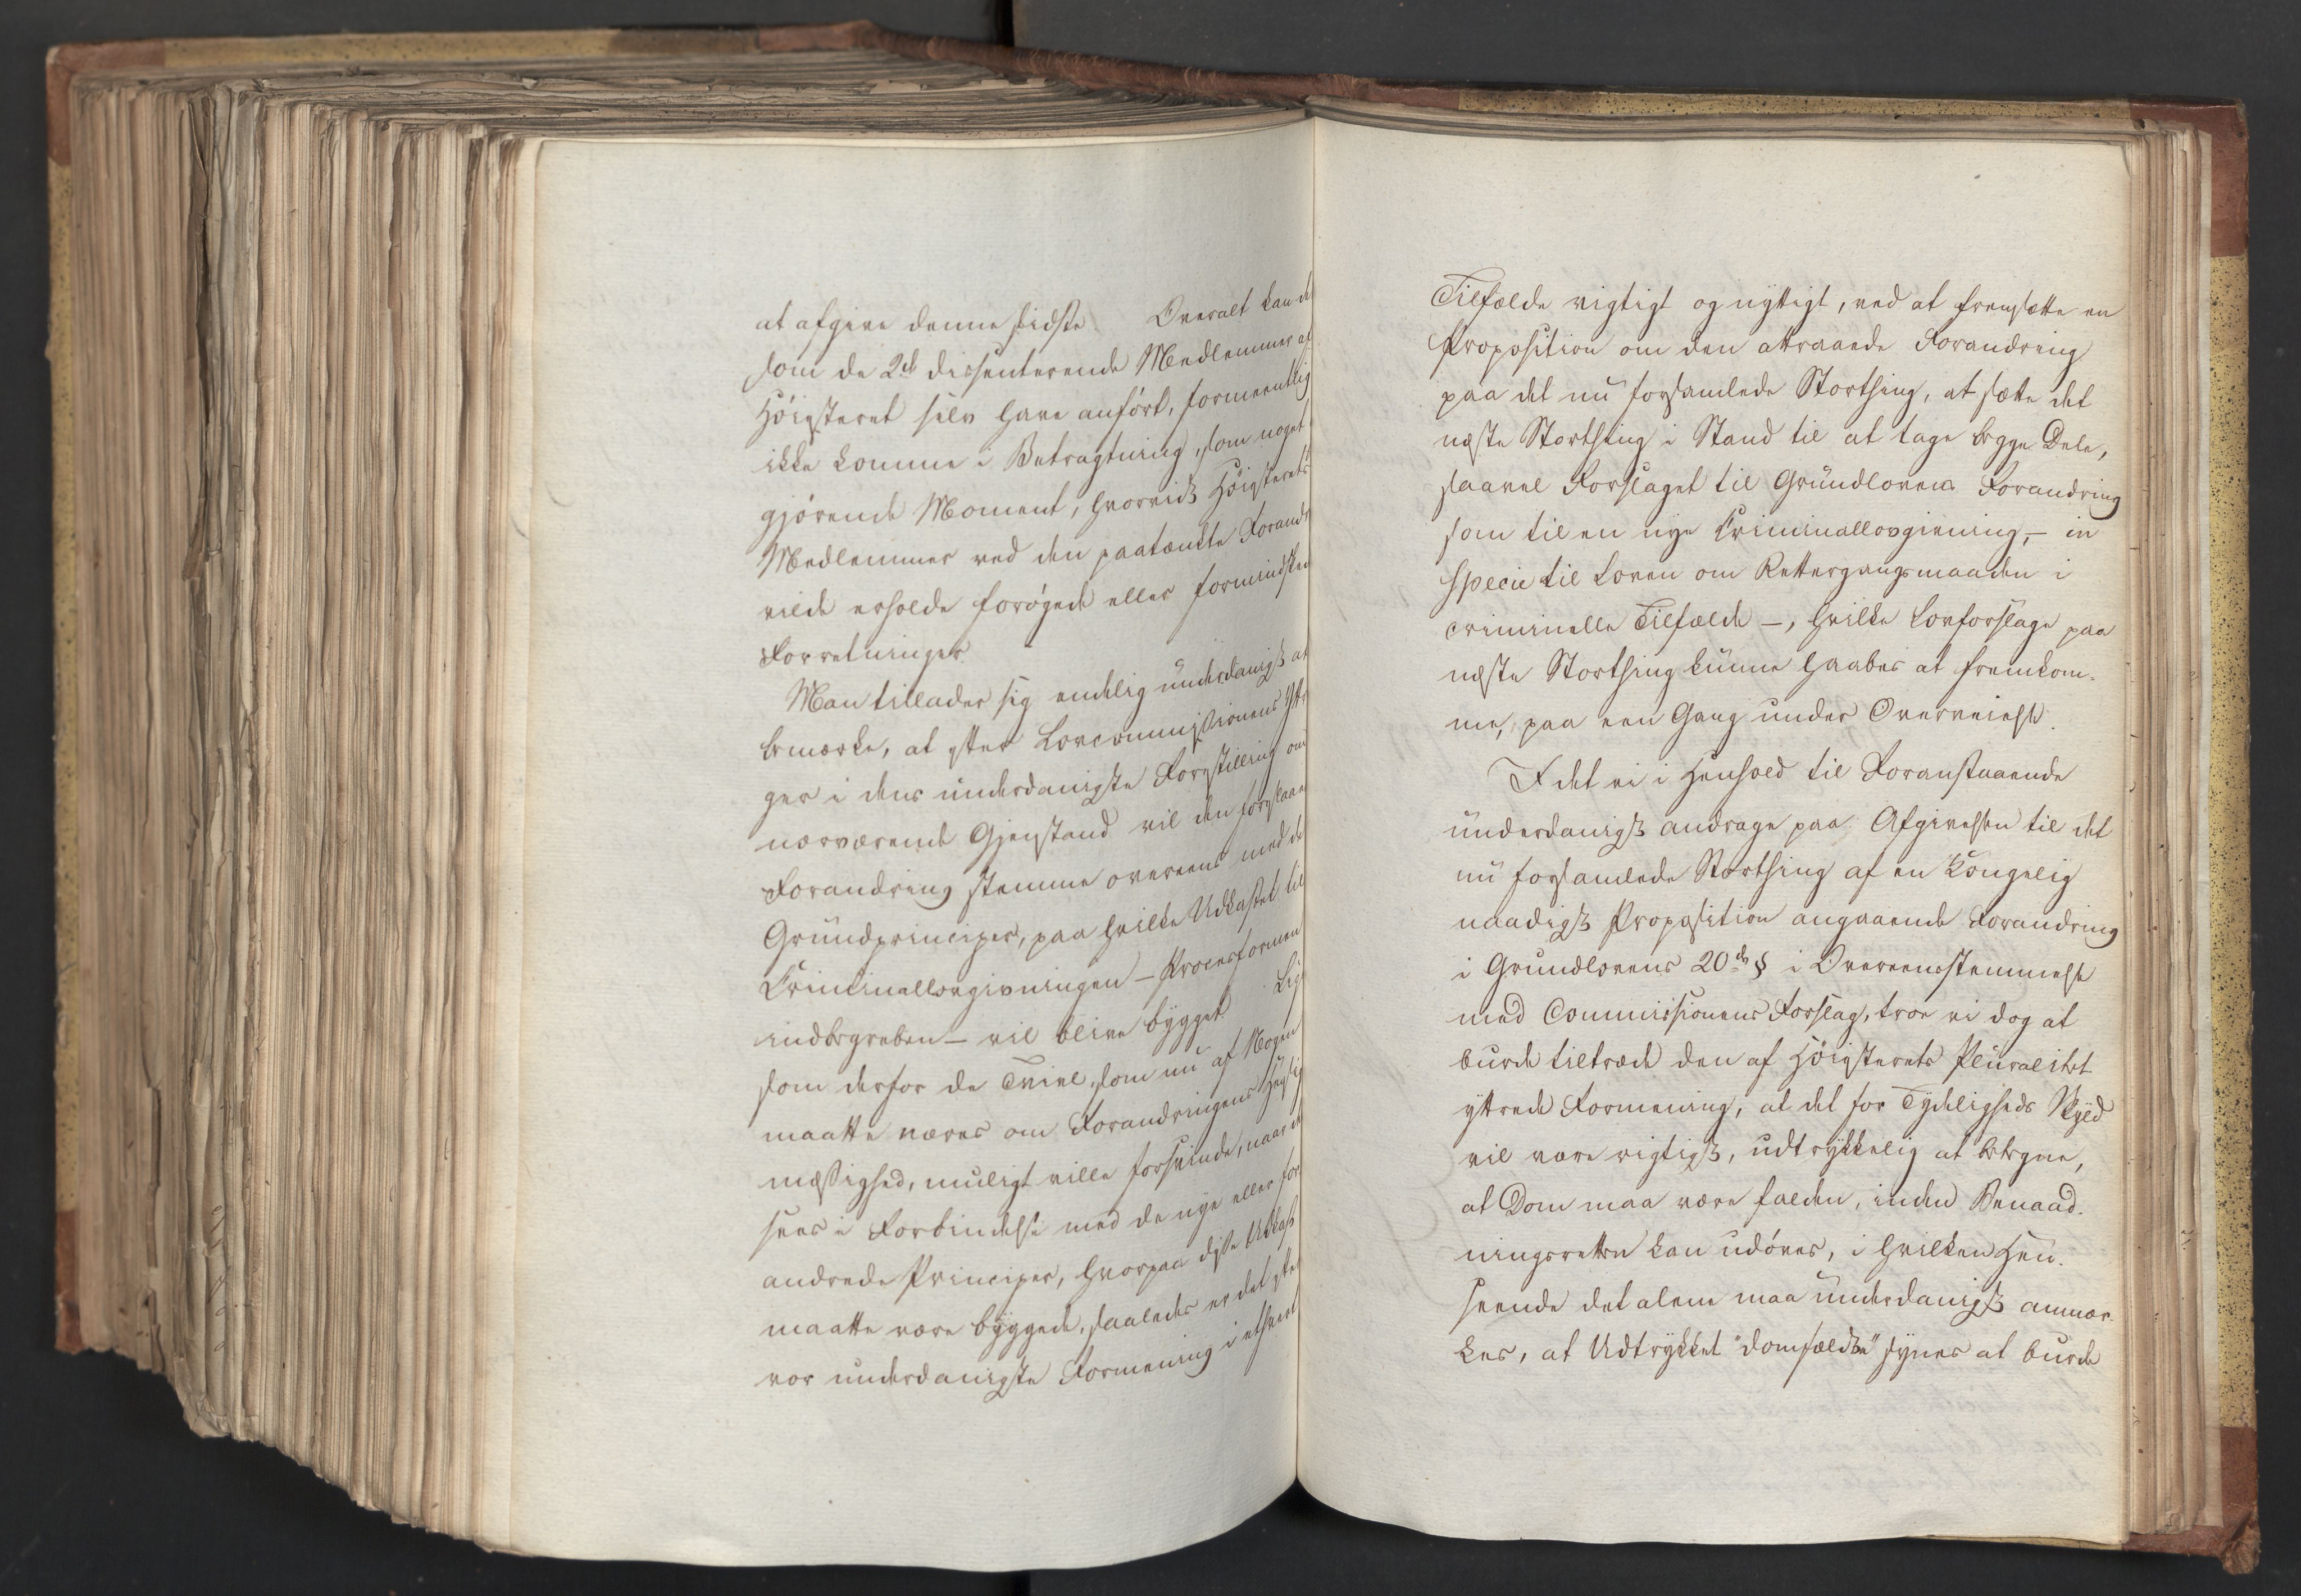 at afgive denne sidste. Overalt kan de
som de 2de dissenterende Medlemmer af
Høiesteret selv have anført, formeentlig
ikke komme i Betragtning, som noget
gjørende Moment, hvorvidt Høiesterets
Medlemmer ved den paatænkte Forandr
vilde erholde forøgede eller formindsked
Forretninger.
Man tillader sig endelig underdanigst at
bemærke, at efter Lovcommissionens Yttr
ger i dens underdanigste Forestilling om
nærværende Gjenstand vil den foreslaae
Forandring stemme overeens med de
Grundprinciper, paa hvilke Udkastet til
Criminallovgivningen – Procesformen
indbegreben – vil blive bygget. Lige
som derfor de Tvivl, som nu af Nogen
maatte næres om Forandringens Hensig
mæssighed, muligt ville forsvinde, naar d
sees i Forbindelse med de nye eller for
andrede Principer, hvorpaa disse Udkast
maatte være byggede, saaledes er det efter
vor underdanigste Formening i ethvert
Tilfælde vigtigt og nyttigt, ved at fremsætte en
Proposition om den attraaede Forandring
paa det nu forsamlede Storthing, at sætte det
næste Storthing i Stand til at tage begge Dele,
saavel Forslaget til Grundlovens Forandring
som til en nye Criminallovgivning, – in
specie til Loven om Rettergangsmaaden i
criminelle Tilfælde –, hvilke Lovforslage paa
næste Storthing kunne haabes at fremkom-
me, paa een Gang under Overveielse.
I det vi i Henhold til Foranstaaende
underdanigst andrage paa Afgivelsen til det
nu forsamlede Storthing af en Kongelig
naadigst Proposition angaaende Forandring
i Grundlovens 20de § i Overeensstemmelse
med Commissionens Forslag, troe vi dog at
burde tiltræde den af Høiesterets Pluralitet
yttrede Formening, at det for Tydeligheds Skyld
vil være rigtigst, udtrykkelig at betegne,
at Dom maa være falden, inden Benaad-
ningsretten kan udøves, i hvilken Hen-
seende det alene maa underdanigst anmær-
kes, at Udtrykket "domfældte" synes at burde